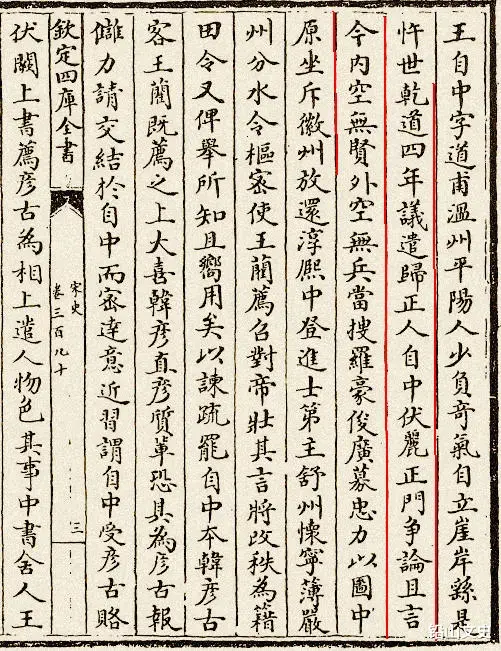 王自中字道甫溫州平陽人少負奇氣自立崖岸繇是
忤世乾道四年議遣歸正人自中伏麗正門爭論且言
今內空無賢外空無兵當搜羅豪俊廣募忠力以圖中
原坐斥徽州放還淳熙中登進士第主舒州懷寧薄嚴
州分水令樞宻使王藺薦召對帝壯其言將改秩為籍
田令又俾舉所知且嚮用矣以諫疏罷自中本韓彥古
客王藺既薦之上大喜韓彥直彥質軰恐其為彥古報
讎力請交結於自中而宻達意近習謂自中受彥古賂
欽定四庫全書
宋史
卷三百九十
三
伏闕上書薦彥古為相上遣人物色其事中書舍人王
铅山文史